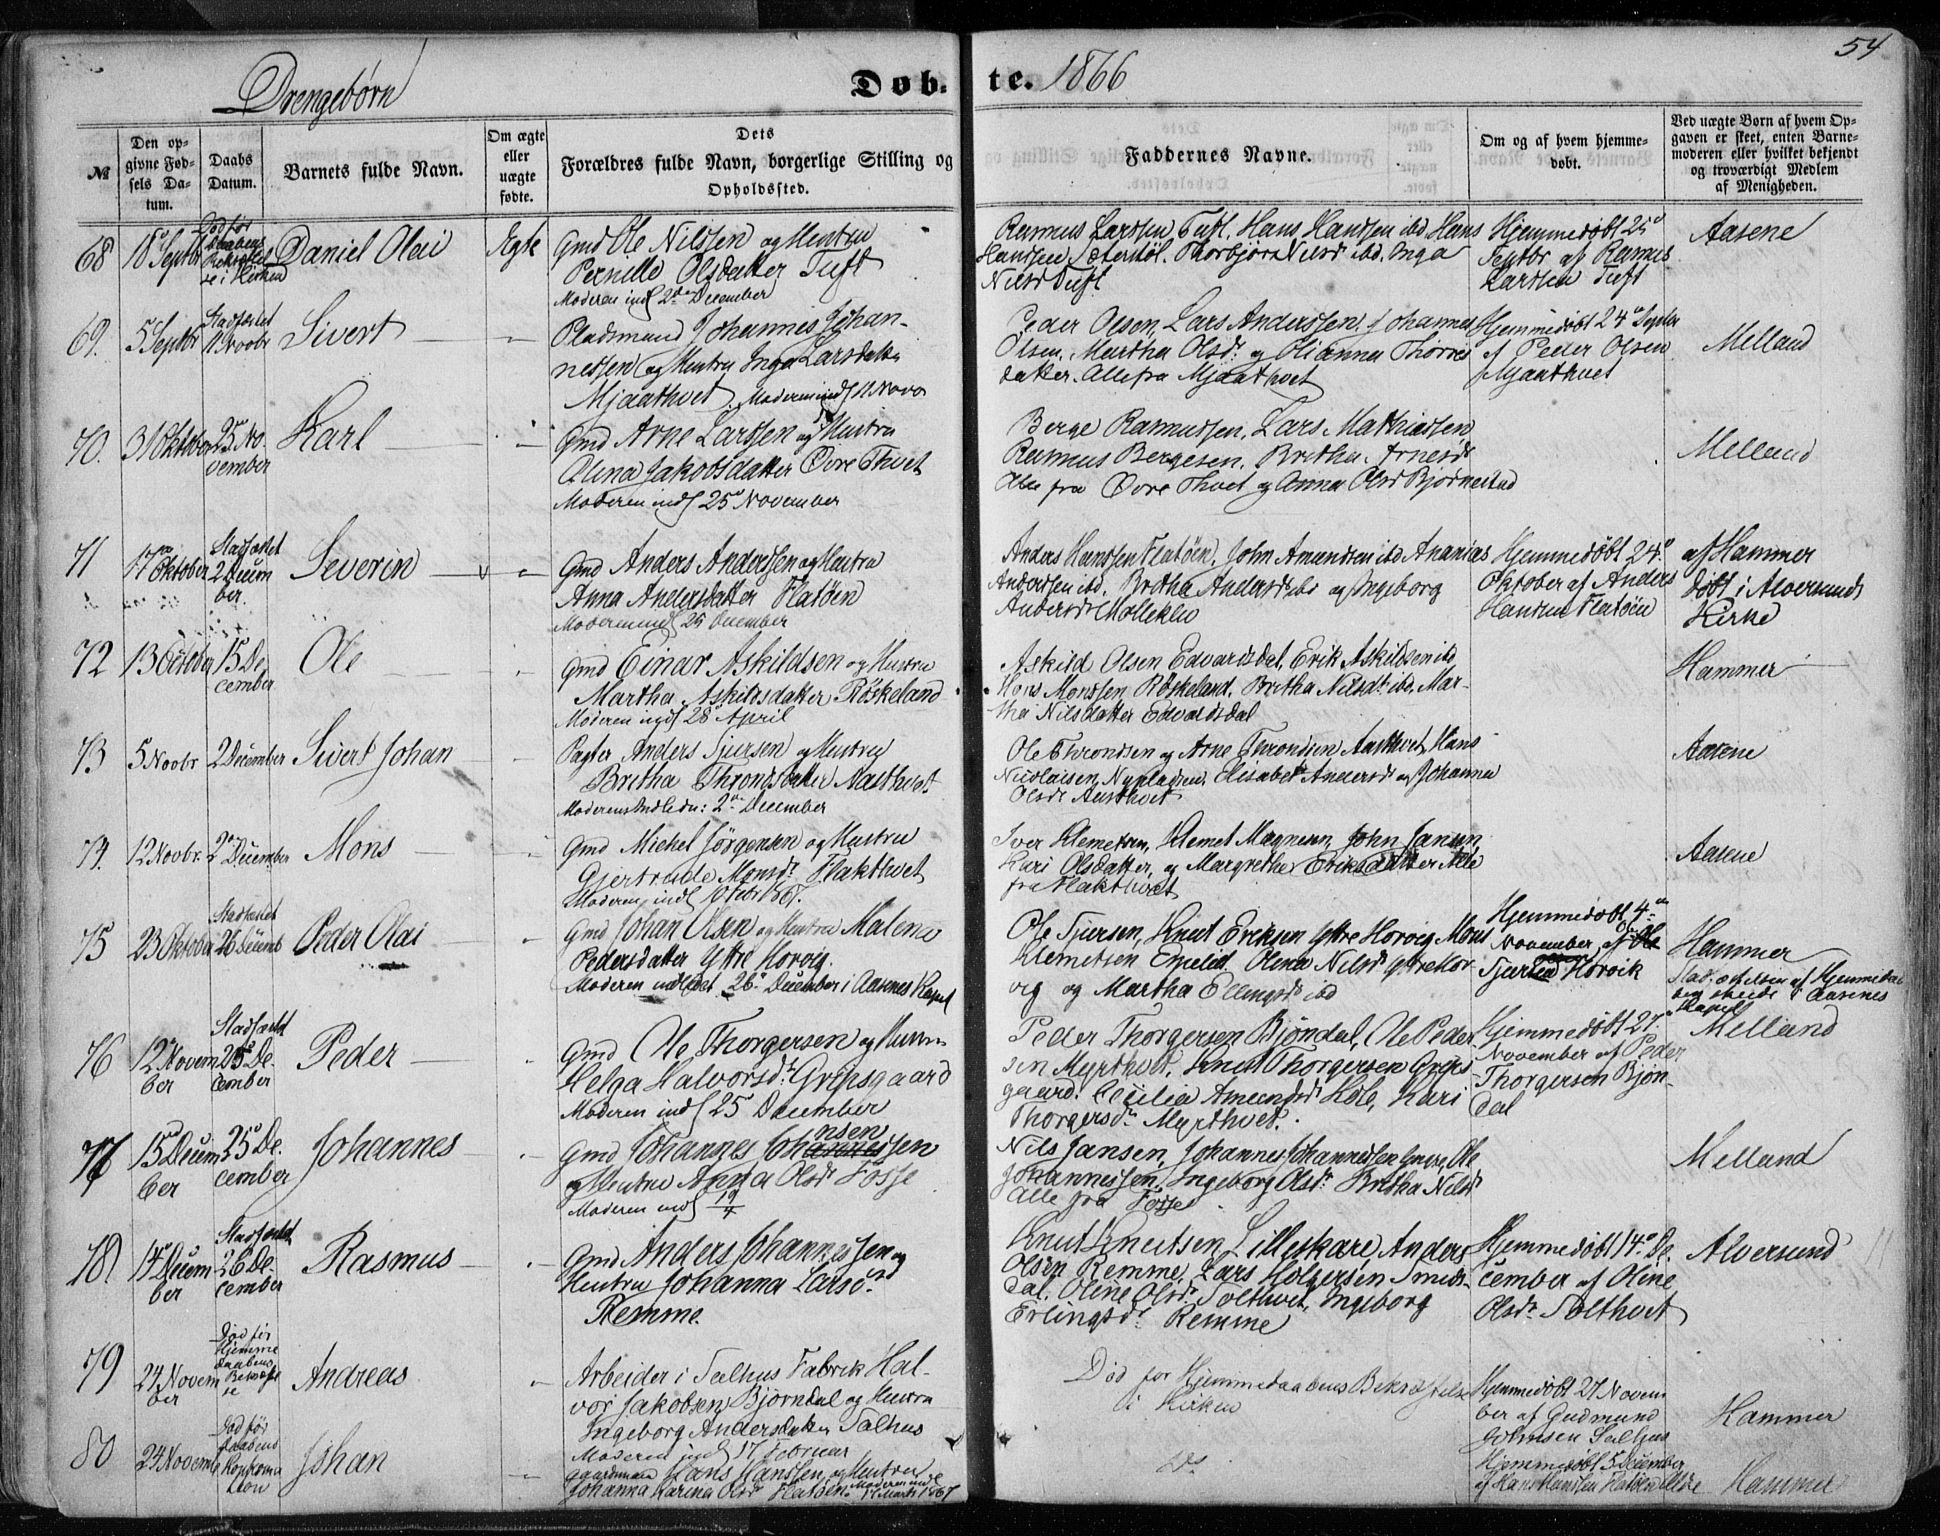 54
Drengebørn
Døb-te. 1866
№
Den opgivne Fødsels Datum.
Daabs Datum.
Barnets fulde Navn.
Om ægte eller uægte fødte.
Dets Forældres fulde Navn, borgerlige Stilling og Opholdssted.
Faddernes Navne.
Om og af hvem hjemmedøbt.
Ved uægte Børn af hvem Opgaven er skeet, enten Barnemoderen eller hvilket bekjendt og troværdigt Medlem af Menigheden.
68 18 Septbr
Død før Daabens
i Kirken
Daniel Olai
Ægte
Gmd Ole Nilssen og Hustru
Pernille Olsdatter Tuft
Moderen indl 2den December
Rasmus Larssen Tuft, Hans Hanssen ibd Hans
Hanssen Sæterstøl. Thorbjøra Nilsd ibd. Inga
Nilsd Tuft
Hjemmedøbt 25
Septbr af Rasmus
Larssen Tuft
Aasene
69. 5 Septbr
Stadfæstet
11 Novbr
Sivert
Pladsmand Johannes Johan-
nessen og Hustru Inga Larsdatter
Mjaathvet. Moderen indl 11 Novbr
Peder Olsen, Lars Anderssen, Johannes
Olsen, Martha Olsdr og Olianna Thorres
datter. Alle fra Mjaathvet
Hjemmedøbt 24 Septbr
af Peder Olsen
Mjaathvet
Melland
70. 31 Oktober
25 No-
vember
Karl
Gmd Arne Larssen og Hustru
Alina Jakobsdatter Øvre Thvet
Moderen indl 25 November
Berge Rasmussen, Lars Mathiassen
Rasmus Bergesen, Britha Arnesd
alle fra Øvre Thvet og Anna Olsd Bjørnestad
Melland
71 17 Oktober
Stadfæstet
2 Decem
ber
Severin
Gmd Anders Anderssen og Hustru
Anna Andersdatter Flatøen
Moderen indl 25 December
Anders Hanssen Flatøen, John Amundsen ibd Ananias
Anderssen ibd. Britha Andersd ibd og Ingeborg
Andersdr Mølleklev
Hjemmedøbt 24
Oktober af Anders
Hanssen Flatøen
af Hammer
døbt i Alversunds
Kirke
72 13 October
15 De-
cember
Ole
Gmd Einar Askildsen og Hustru
Martha Askildsdatter Røskeland
Moderen indl 28 April
Askild Olsen Edvardsdal, Erik Askildsen ibd
Mons Monssen Røskeland. Britha Nilsdr ibd. Mar-
tha Nilsdatter Edvardsdal
Hammer
73 5 Novbr
2 December
Sivert Johan
Pagter Anders Sjursen og Hustru
Britha Throndsdatter Aasthvet
Moderens Indledn: 2 December
Ole Throndsen og Arne Throndsen Aasthvet Hans
Nicolaisen Nypladsen. Elisabet Andersdr og Johanna
Olsdr Aasthvet
Aasene
74. 12 Novbr.
2 December
Mons
Gmd Michel Jørgensen og Hustru
Gjertrude Monsdr Flakthvet
Iver Klemetsen, Klemet Magnesen, John Jansen,
Kari Olsdatter, og Margrethe Eriksdatter Alle
fra Flakthvet
Aasene
75 23 Oktober
Stadfæstet
26 Decemb
Peder Olai
Gmd Johan Olsen og Hustru Malene
Pedersdatter Ytre Horvig.
Moderen indledet 26 December i Aasenes Kapel
Ole Sjursen, Knut Eriksen Ytre Horvig Mons
Klemetsen Epelid. Olina Nilsd Ytre Hor-
vig og Martha Ellingsd ibd
Hjemmedøbt 4
November af Ole
Sjursen Horvik
Hammer
Stadfæstelsen af Hjemmedaa-
ben skeede i Aasenes
Kapel
76 12 Novem
ber
Stadfæstet
25 De-
cember
Peder
Gmd Ole Thorgersen og Hustru
Helga Halvorsdr Gripsgaard
Moderen indl 25 December
Peder Thorgersen Bjøndal, Ole Peder-
sen Myrthvet, Knut Thorgersen Grips-
gaard. Cecilia Amundsd Hole, Kari
Thorgersdr Myrthvet.
Hjemmedøbt 27
November af Peder
Thorgersen Bjøn-
dal
Melland
77 15 Decem
ber
25 De-
cember
Johannes
Gmd Johannes Johannessen
og Hustru Anna Olsdr Fosse
Moderen indl
Nils Jansen, Johannes Johannessen Ole
Johannessen, Ingeborg Olsdr Britha Nilsd
Alle fra Fosse
Melland
78 14 Decem
ber
Stadfæstet
26 De-
cember
Rasmus
Gmd Anders Johannessen og
Hustru Johanna Larsd
Remme.
Knut Knutsen Lilleskare, Anders
Olsen Remme, Lars Holgersen Smeds-
dal. Oline Olsdr Solthvet, Ingeborg
Erlingsdr Remme
Hjemmedøbt 14 De-
cember af Oline
Olsdr Solthvet
Alversund
79 24 Novem
ber
Død før
Hjemme
daabens
Bekræftel
se
Andreas
Arbeider i Salhus Fabrik Hal-
vor Jakobsen Bjørndal og Hustru
Ingeborg Andersdatter Salhus
Moderen indl 17 Februar
Død før Hjemmedaabens Bekræftelse
i Kirken
Hjemmedøbt 27 Novem
ber af Gudmund
Johnsen Salhus
Hammer
80 24 Novemb
Død før
Daabens
Johan
Gaardmand Hans Hanssen og Hustru
Johanna Karina Olsd Flatøen. Moderen indl
Marts 1867
Do
Hjemmedøbt 5 December
af Hans Hanssen Flatøen
Hammer